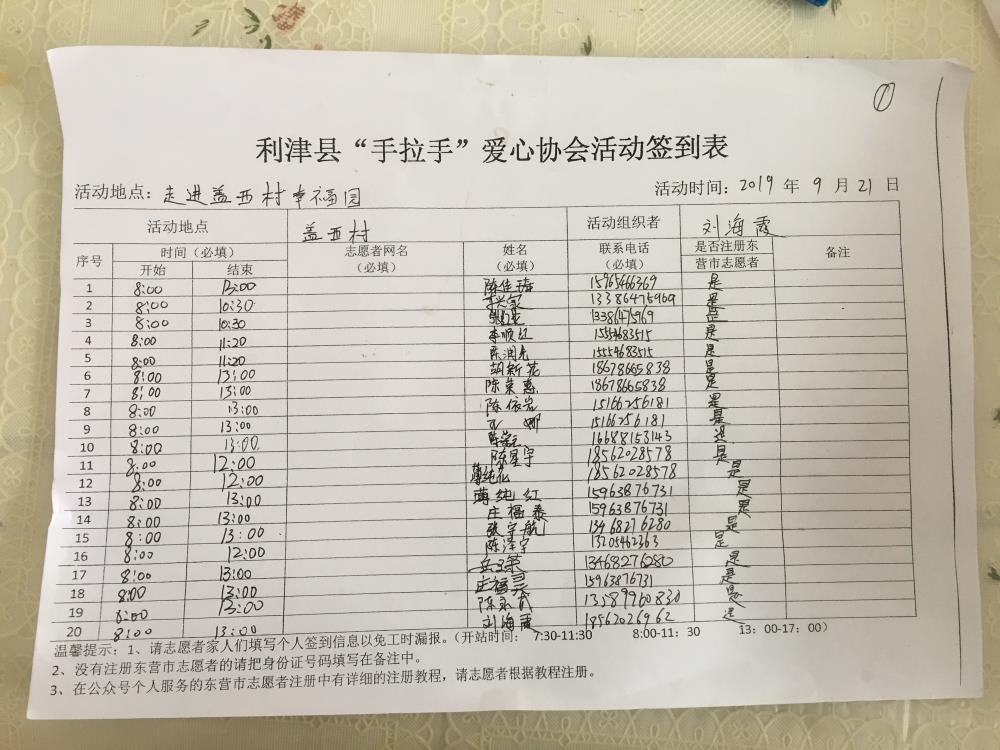 ①
利津县“手拉手”爱心协会活动签到表
活动地点：走进盖西村幸福园 活动时间：2019 年 9 月 21 日
活动地点 盖西村 活动组织者 刘海霞
序号 时间（必填） 志愿者网名（必填） 姓名（必填） 联系电话（必填） 是否注册东营市志愿者 备注
开始 结束
1 8:00 13:00 陈佳琦 15965466369 是
2 8:00 10:30 13386475969 是
3 8:00 10:30 13386475969 是
4 8:00 11:20 李顺红 15554683515 是
5 8:00 11:20 15554683515 是
6 8:00 13:00 胡新花 18678665838 是
7 8:00 13:00 陈荣惠 18678665838 是
8 8:00 13:00 陈依岩 15166256181 是
9 8:00 13:00 娜 15166256181 是
10 8:00 13:00 16688153143 是
11 8:00 12:00 陈星宇 18562028578 是
12 8:00 12:00 薄纯化 18562028578 是
13 8:00 13:00 薄纯红 15963876731 是
14 8:00 13:00 庄福泰 15963876731 是
15 8:00 13:00 张宇航 13468276280 是
16 8:00 12:00 陈泽宇 13205462363 是
17 8:00 13:00 13468276280 是
18 8:00 13:00 庄福 15963876731 是
19 8:00 13:00 陈永 13589960830 是
20 8:00 13:00 刘海霞 18562026962 是
温馨提示：1、请志愿者家人们填写个人签到信息以免工时漏报。（开站时间： 7:30-11:30 8:00-11：30 13：00-17：00）
2、没有注册东营市志愿者的请把身份证号码填写在备注中。
3、在公众号个人服务的东营市志愿者注册中有详细的注册教程，请志愿者根据教程注册。